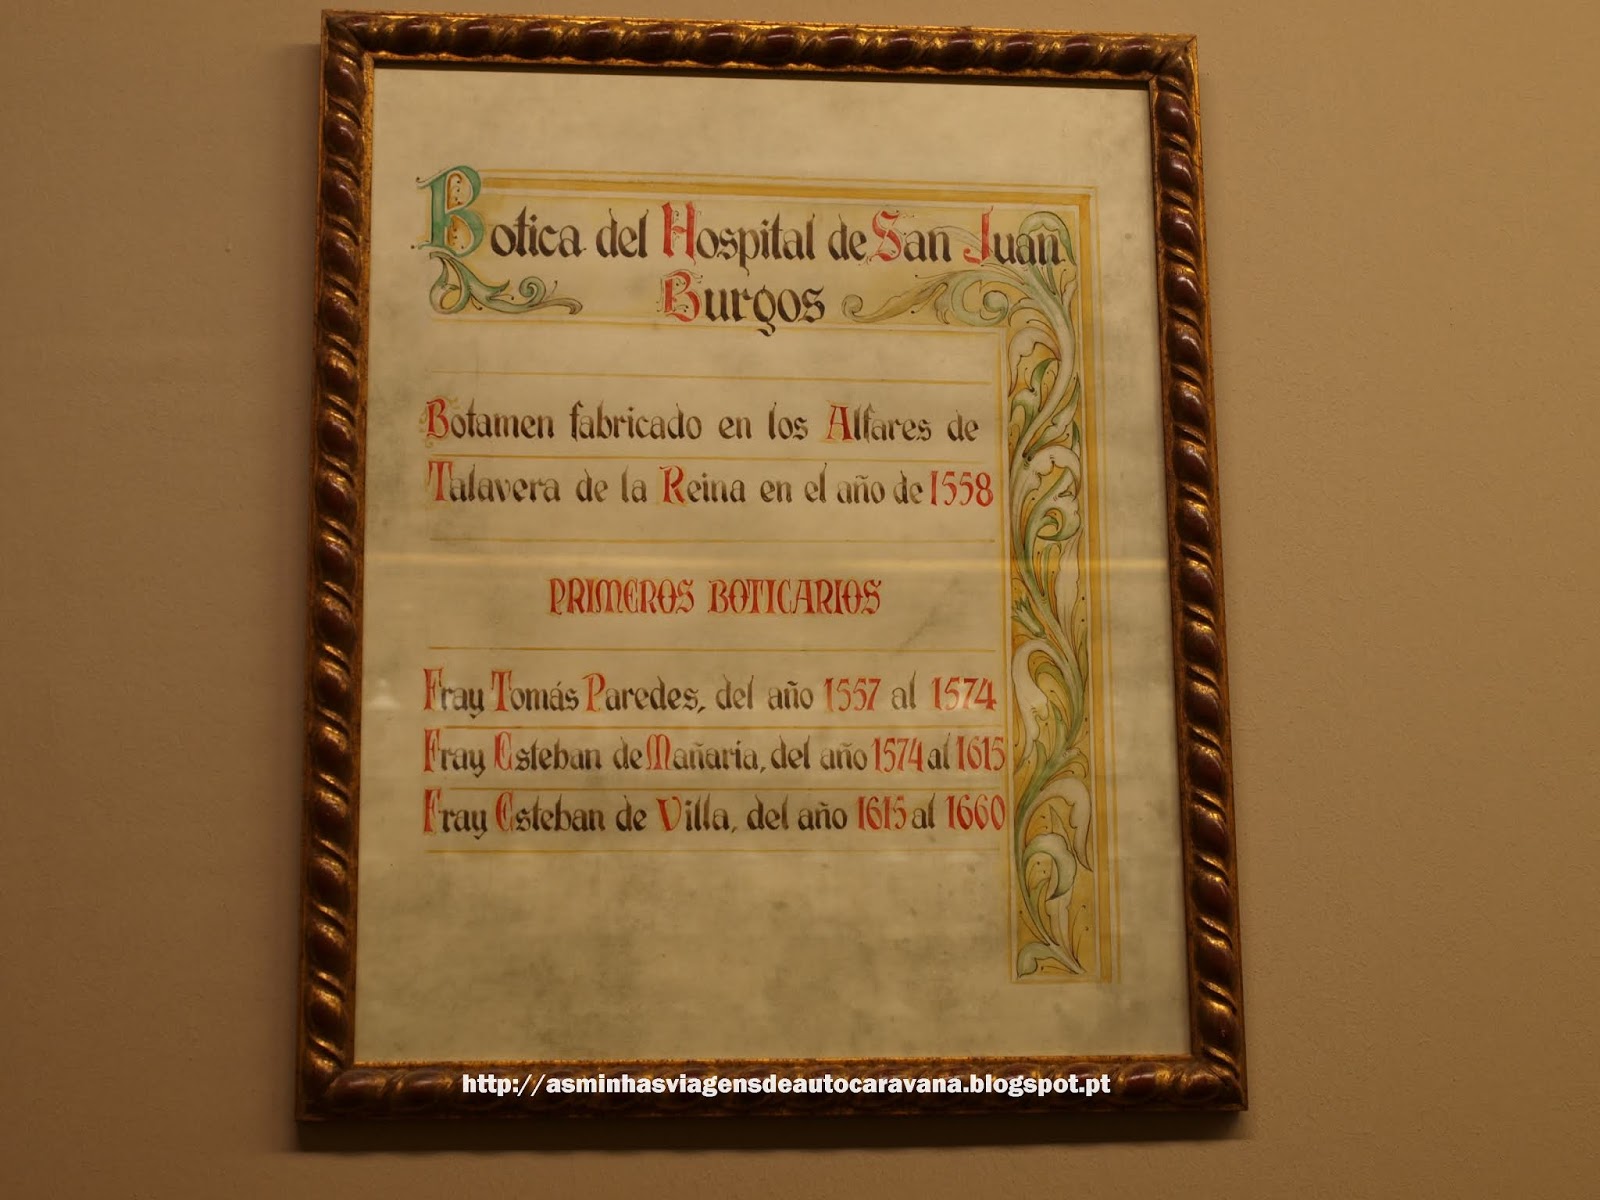 Botica del Hospital de San Juan
Burgos
Botamen fabricado en los Alfares de
Talavera de la Reina en el año de 1558
PRIMEROS BOTICARIOS
Fray Tomás Paredes, del año 1557 al 1574
Fray Esteban de Mañaria, del año 1574 al 1615
Fray Esteban de Villa, del año 1615 al 1660
http://asminhasviagensdeautocaravana.blogspot.pt